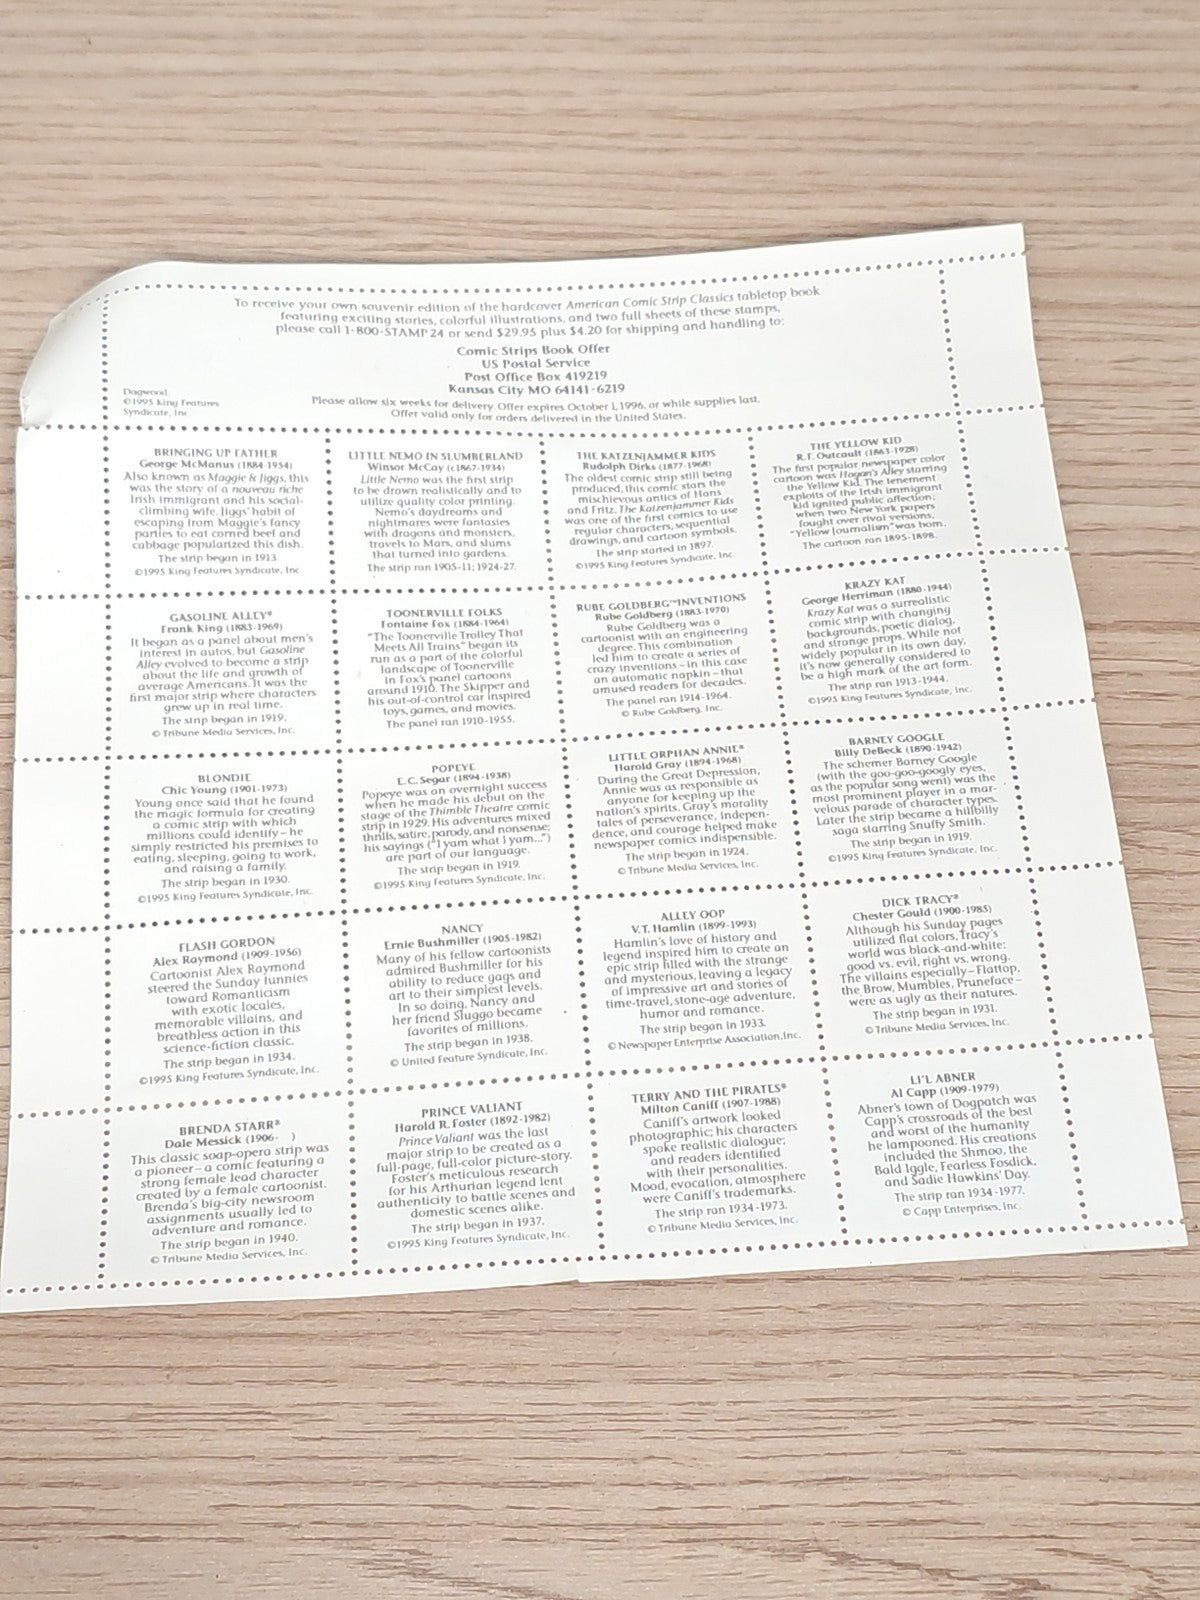 To receive your own souvenir edition of the hardcover American Comic Strip Classics tabletop book
featuring exciting stories, colorful illustrations, and two full sheets of these stamps,
please call 1-800-STAMP 24 or send $29.95 plus $4.20 for shipping and handling to:
Comic Strips Book Offer
US Postal Service
Post Office Box 419219
Kansas City MO 64141-6219
Please allow six weeks for delivery. Offer expires October 1, 1996, or while supplies last.
Offer valid only for orders delivered in the United States.
Dagwood.
©1995 King Features
Syndicate, Inc.
BRINGING UP FATHER
George McManus (1884-1954)
Also known as Maggie & Jiggs, this
was the story of a nouveau riche
Irish immigrant and his social-
climbing wife. Jiggs' habit of
escaping from Maggie's fancy
parties to eat corned beef and
cabbage popularized this dish.
The strip began in 1913
©1995 King Features Syndicate, Inc.
LITTLE NEMO IN SLUMBERLAND
Winsor McCay (c1867-1934)
Little Nemo was the first strip
to be drawn realistically and to
utilize quality color printing.
Nemo's daydreams and
nightmares were fantasies
with dragons and monsters,
travels to Mars, and slums
that turned into gardens.
The strip ran 1905-11; 1924-27.
THE KATZENJAMMER KIDS
Rudolph Dirks (1877-1968)
The oldest comic strip still being
produced, this comic stars the
mischievous antics of Hans
and Fritz. The Katzenjammer Kids
was one of the first comics to use
regular characters, sequential
drawings, and cartoon symbols.
The strip started in 1897.
©1995 King Features Syndicate, Inc.
THE YELLOW KID
R.F. Outcault (1863-1928)
The first popular newspaper color
cartoon was Hogan's Alley starring
the Yellow Kid. The tenement
exploits of the Irish immigrant
kid ignited public affection;
when two New York papers
fought over rival versions,
"Yellow Journalism" was born.
The cartoon ran 1895-1898.
GASOLINE ALLEY®
Frank King (1883-1969)
It began as a panel about men's
interest in autos, but Gasoline
Alley evolved to become a strip
about the life and growth of
average Americans. It was the
first major strip where characters
grew up in real time.
The strip began in 1919.
© Tribune Media Services, Inc.
TOONERVILLE FOLKS
Fontaine Fox (1884-1964)
"The Toonerville Trolley That
Meets All Trains" began its
run as a part of the colorful
landscape of Toonerville
in Fox's panel cartoons
around 1910. The Skipper and
his out-of-control car inspired
toys, games, and movies.
The panel ran 1910-1955.
RUBE GOLDBERG™ INVENTIONS
Rube Goldberg (1883-1970)
Rube Goldberg was a
cartoonist with an engineering
degree. This combination
led him to create a series of
crazy inventions – in this case
an automatic napkin – that
amused readers for decades.
The panel ran 1914-1964.
© Rube Goldberg, Inc.
KRAZY KAT
George Herriman (1880-1944)
Krazy Kat was a surrealistic
comic strip with changing
backgrounds, poetic dialog,
and strange props. While not
widely popular in its own day,
it's now generally considered to
be a high mark of the art form.
The strip ran 1913-1944.
©1995 King Features Syndicate, Inc.
BLONDIE
Chic Young (1901-1973)
Young once said that he found
the magic formula for creating
a comic strip with which
millions could identify – he
simply restricted his premises to
eating, sleeping, going to work,
and raising a family.
The strip began in 1930.
©1995 King Features Syndicate, Inc.
POPEYE
E.C. Segar (1894-1938)
Popeye was an overnight success
when he made his debut on the
stage of the Thimble Theatre comic
strip in 1929. His adventures mixed
thrills, satire, parody, and nonsense;
his sayings ("I yam what I yam...")
are part of our language.
The strip began in 1919.
©1995 King Features Syndicate, Inc.
LITTLE ORPHAN ANNIE®
Harold Gray (1894-1968)
During the Great Depression,
Annie was as responsible as
anyone for keeping up the
nation's spirits. Gray's morality
tales of perseverance, indepen-
dence, and courage helped make
newspaper comics indispensible.
The strip began in 1924.
© Tribune Media Services, Inc.
BARNEY GOOGLE
Billy DeBeck (1890-1942)
The schemer Barney Google
(with the goo-goo-googly eyes,
as the popular song went) was the
most prominent player in a mar-
velous parade of character types.
Later the strip became a hillbilly
saga starring Snuffy Smith.
The strip began in 1919.
©1995 King Features Syndicate, Inc.
FLASH GORDON
Alex Raymond (1909-1956)
Cartoonist Alex Raymond
steered the Sunday funnies
toward Romanticism
with exotic locales,
memorable villains, and
breathless action in this
science-fiction classic.
The strip began in 1934.
©1995 King Features Syndicate, Inc.
NANCY
Ernie Bushmiller (1905-1982)
Many of his fellow cartoonists
admired Bushmiller for his
ability to reduce gags and
art to their simplest levels.
In so doing, Nancy and
her friend Sluggo became
favorites of millions.
The strip began in 1938.
© United Feature Syndicate, Inc.
ALLEY OOP
V.T. Hamlin (1899-1993)
Hamlin's love of history and
legend inspired him to create an
epic strip filled with the strange
and mysterious, leaving a legacy
of impressive art and stories of
time-travel, stone-age adventure,
humor and romance.
The strip began in 1933.
© Newspaper Enterprise Association, Inc.
DICK TRACY®
Chester Gould (1900-1985)
Although his Sunday pages
utilized flat colors, Tracy's
world was black-and-white:
good vs. evil, right vs. wrong.
The villains especially – Flattop,
the Brow, Mumbles, Pruneface –
were as ugly as their natures.
The strip began in 1931.
© Tribune Media Services, Inc.
BRENDA STARR®
Dale Messick (1906- )
This classic soap-opera strip was
a pioneer – a comic featuring a
strong female lead character
created by a female cartoonist.
Brenda's big-city newsroom
assignments usually led to
adventure and romance.
The strip began in 1940.
© Tribune Media Services, Inc.
PRINCE VALIANT
Harold R. Foster (1892-1982)
Prince Valiant was the last
major strip to be created as a
full-page, full-color picture-story.
Foster's meticulous research
for his Arthurian legend lent
authenticity to battle scenes and
domestic scenes alike.
The strip began in 1937.
©1995 King Features Syndicate, Inc.
TERRY AND THE PIRATES®
Milton Caniff (1907-1988)
Caniff's artwork looked
photographic; his characters
spoke realistic dialogue;
and readers identified
with their personalities.
Mood, evocation, atmosphere
were Caniff's trademarks.
The strip ran 1934-1973.
© Tribune Media Services, Inc.
LI'L ABNER
Al Capp (1909-1979)
Abner's town of Dogpatch was
Capp's crossroads of the best
and worst of the humanity
he lampooned. His creations
included the Shmoo, the
Bald Iggle, Fearless Fosdick,
and Sadie Hawkins' Day.
The strip ran 1934-1977.
© Capp Enterprises, Inc.